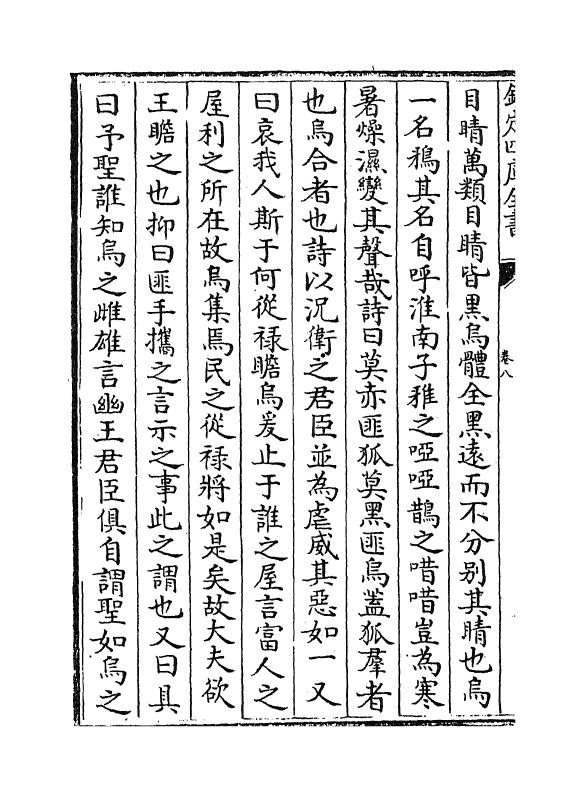 欽定四庫全書
卷八
目睛萬類目睛皆黑烏體全黑遠而不分别其睛也烏
一名鵶其名自呼淮南子鵶之啞啞鵲之唶唶豈為寒
暑燥濕變其聲哉詩曰莫赤匪狐莫黑匪烏葢狐羣者
也烏合者也詩以況衛之君臣並為虐威其惡如一又
曰哀我人斯于何從禄瞻烏爰止于誰之屋言富人之
屋利之所在故烏集焉民之從禄將如是矣故大夫欲
王瞻之也抑曰匪手攜之言示之事此之謂也又曰具
曰予聖誰知烏之雌雄言幽王君臣俱自謂聖如烏之